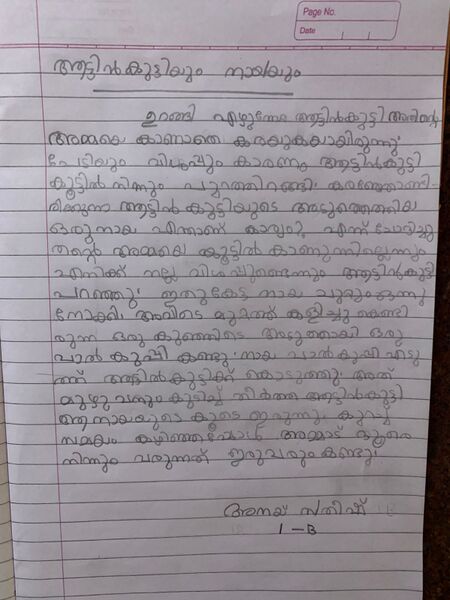 Page No.
Date
ആട്ടിൻകുട്ടിയും നായയും
ഉറങ്ങി എഴുന്നേറ്റ ആട്ടിൻകുട്ടി അതിന്റെ
അമ്മയെ കാണാതെ കരയുകയായിരുന്നു.
പേടിയും വിശപ്പും കാരണം ആട്ടിൻകുട്ടി
കൂട്ടിൽ നിന്നും പുറത്തിറങ്ങി. കരഞ്ഞോണ്ടി-
രിക്കുന്ന ആട്ടിൻ കുട്ടിയുടെ അടുത്തെത്തിയ
ഒരു നായ എന്താണ് കാര്യം? എന്ന് ചോദിച്ചു
തന്റെ അമ്മയെ കൂട്ടിൽ കാണുന്നില്ലെന്നും
എനിക്ക് നല്ല വിശപ്പുണ്ടെന്നും ആട്ടിൻകുട്ടി
പറഞ്ഞു. ഇതുകേട്ട നായ ചുറ്റും ഒന്നു
നോക്കി. അവിടെ മുറ്റത്ത് കളിച്ചു കൊണ്ടി
രുന്ന ഒരു കുഞ്ഞിന്റെ അടുത്തായി ഒരു
പാൽ കുപ്പി കണ്ടു. നായ പാൽകുപ്പി എടു
ത്ത് ആട്ടിൻകുട്ടിക്ക് കൊടുത്തു. അത്
മുഴുവനും കുടിച്ച് തീർത്ത ആട്ടിൻകുട്ടി
ആ നായയുടെ കൂടെ ഇരുന്നു. കുറച്ച്
സമയം കഴിഞ്ഞപ്പോൾ അമ്മാട് ദൂരെ
നിന്നും വരുന്നത് ഇരുവരും കണ്ടു.
അനയ് സതീഷ്
1 - B